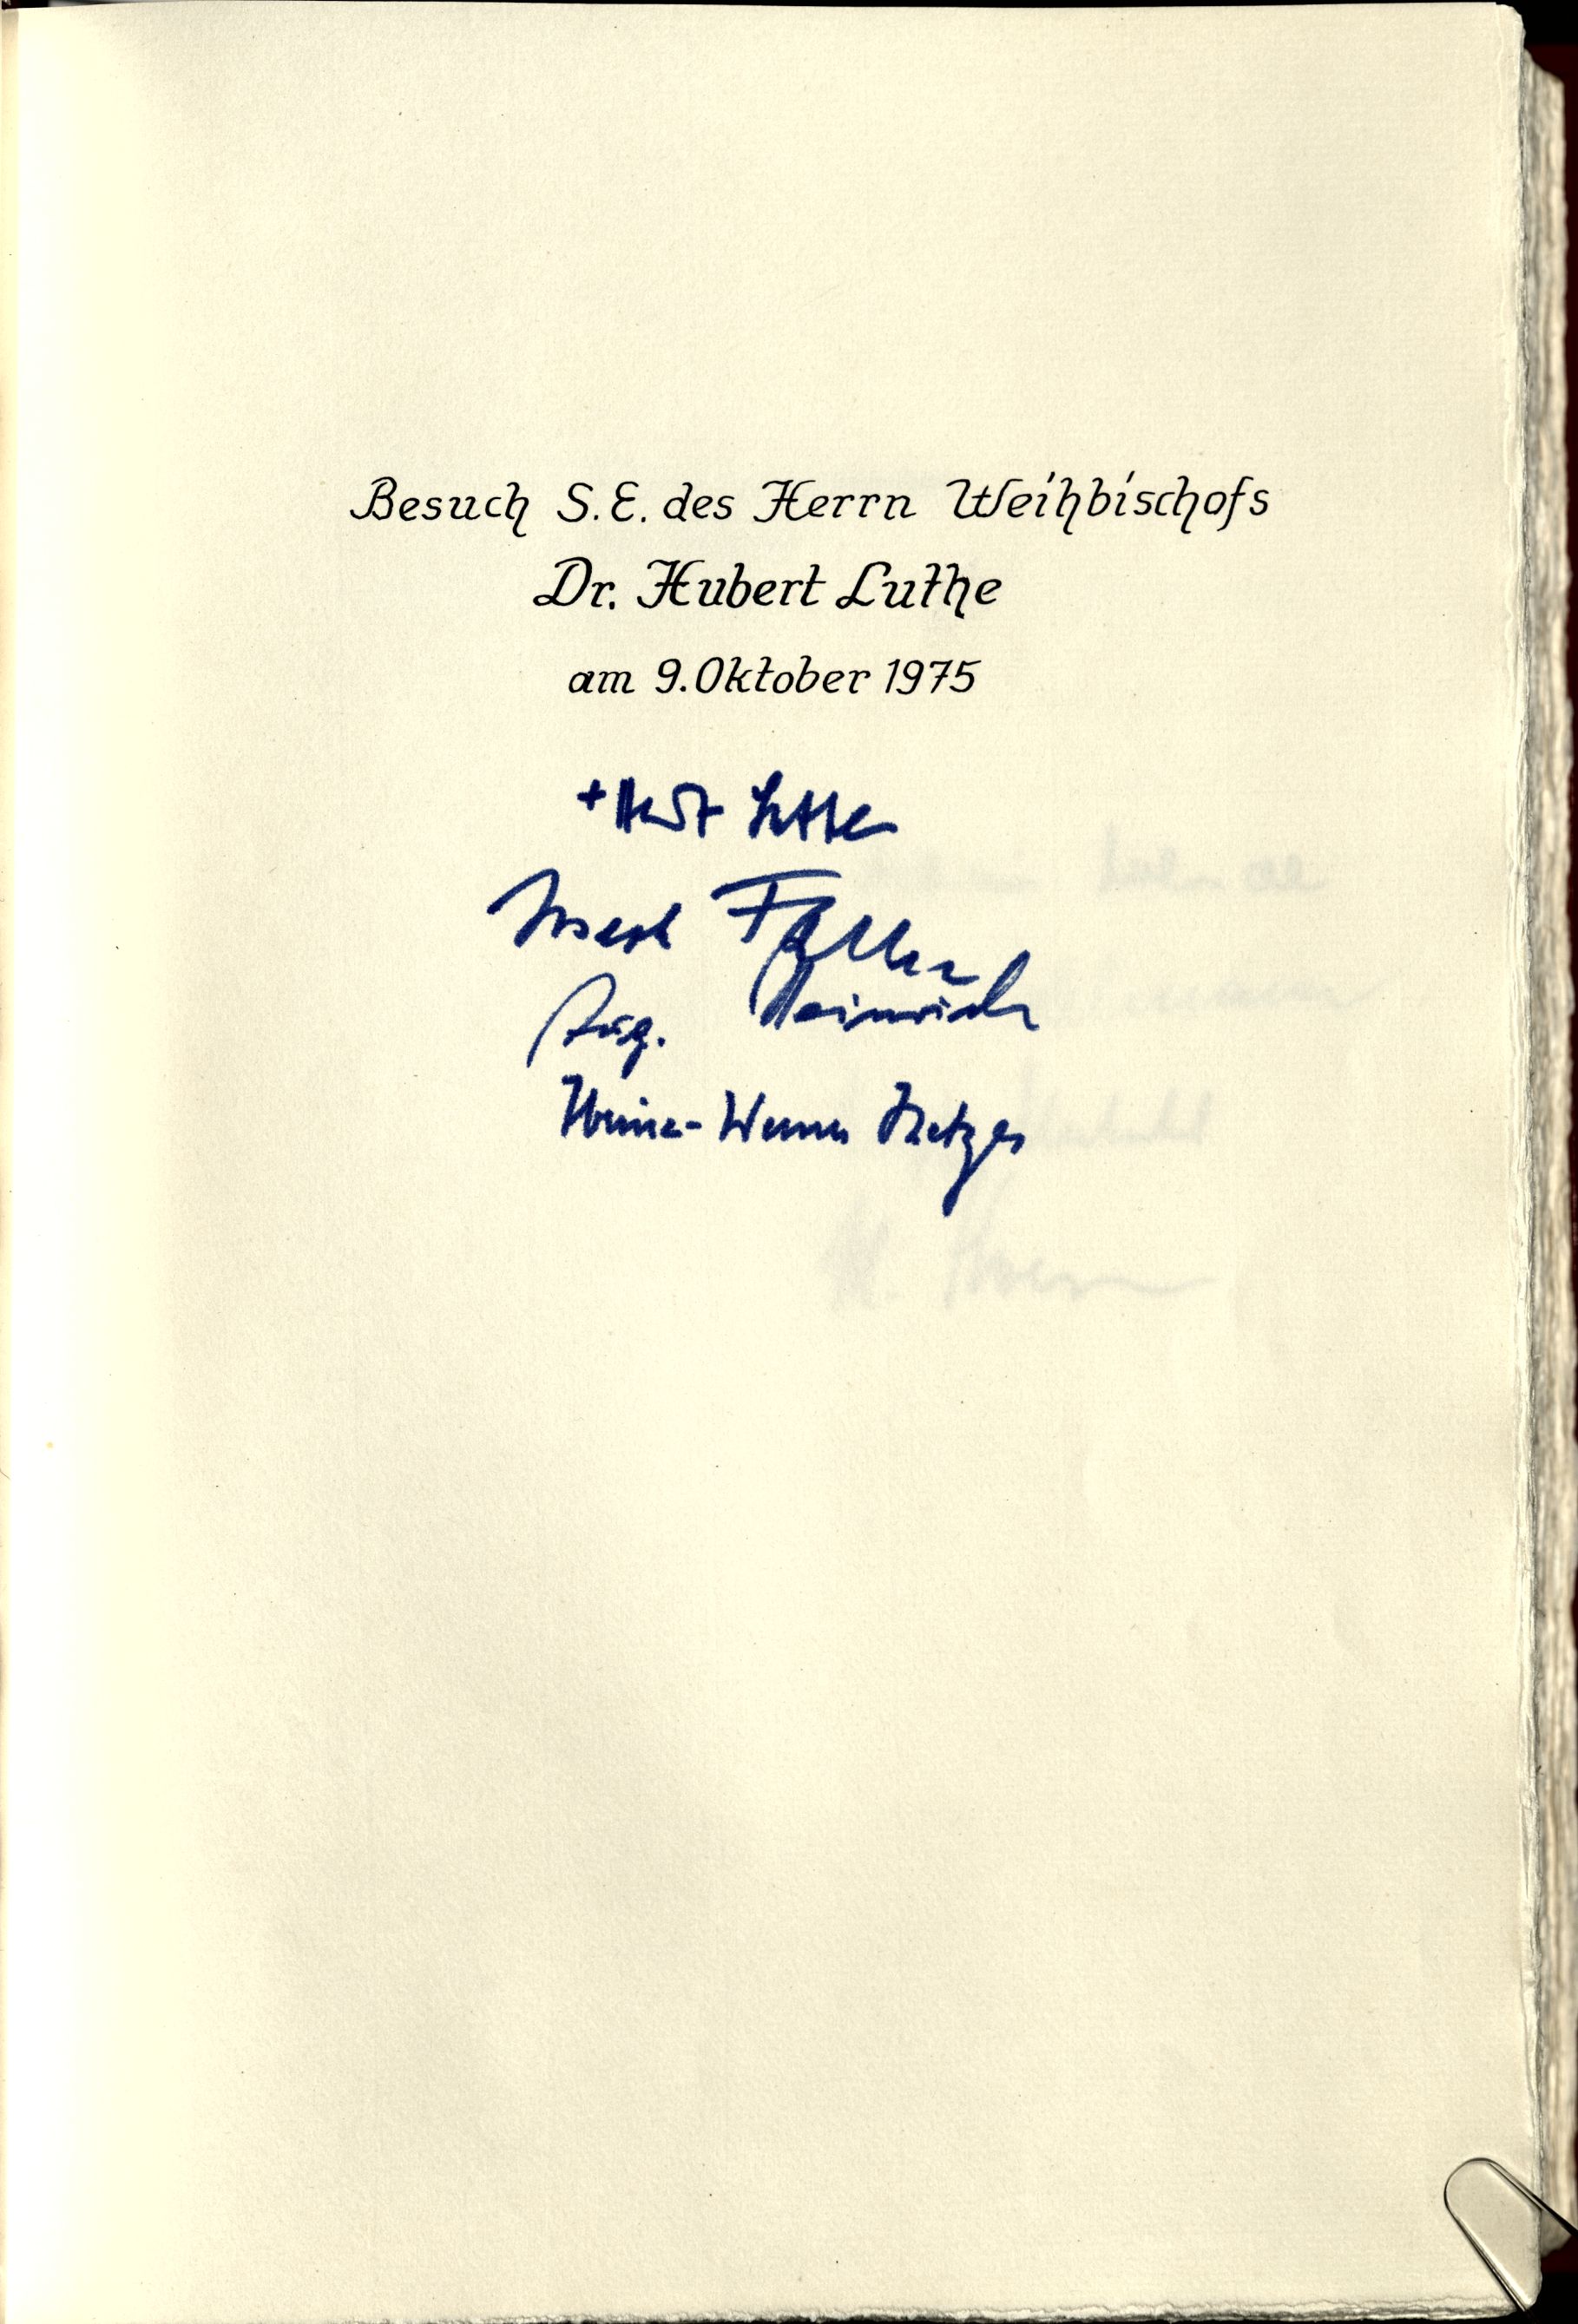 Besuch S. E. des Herrn Weihbischofs
Dr. Hubert Luthe
am 9. Oktober 1975
+ Hubert Luthe
Joseph
Aug. Heinrich
Werner